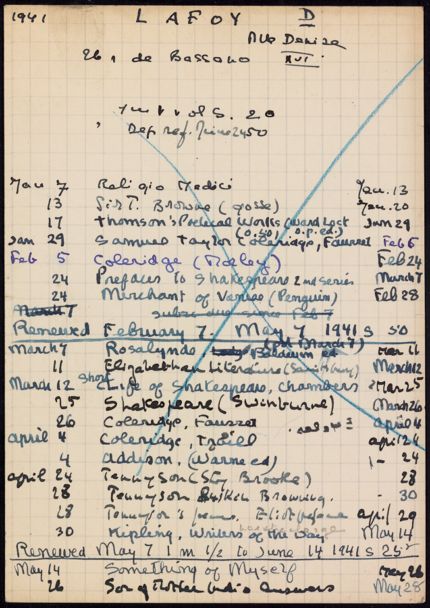 1941 LAFOY D
Mlle Denise
26, r de Bassano XVI
1 m 1 vol S. 20
Dep ref. 50
Jan 7 Religio Medici Jan. 13
13 Sir T. Browne (Gosse) Jan. 20
17 Thomson's Poetical Works (Ward Lock Jan 29
(o.s.o, o.p. ed.)
Jan 29 Samuel Taylor Coleridge, Fausset Feb 6
Feb 5 Coleridge Feb 24
24 Prefaces to Shakespeare 2nd series March 7
24 Merchant of Venice (Penguin) Feb 28
March 7 subs due since Feb 7
Renewed February 7. May 7 1941 S 50
(pd March 7)
March 7 Rosalynde Baldwin ed Mar 11
11 Elizabethan Literature (Saintsbury) March 12
March 12 Short Life of Shakespeare, Chambers Mar 25
25 Shakespeare (Swinburne) March 26
26 Coleridge, Fausset april 4
april 4 Coleridge, april 24
4 Addison, (Warne ed) 24
april 24 Tennyson (Sty Brooke) 28
28 Tennyson Ruskin Browning. 30
28 Tennyson's poems. Eliot preface april 29
30 Kipling, Writers of the Day May 14
Renewed May 7 1 m 1/2 to June 14 1941 S 25
May 14 Something of Myself May 26
26 Son of Mother India Answers May 28